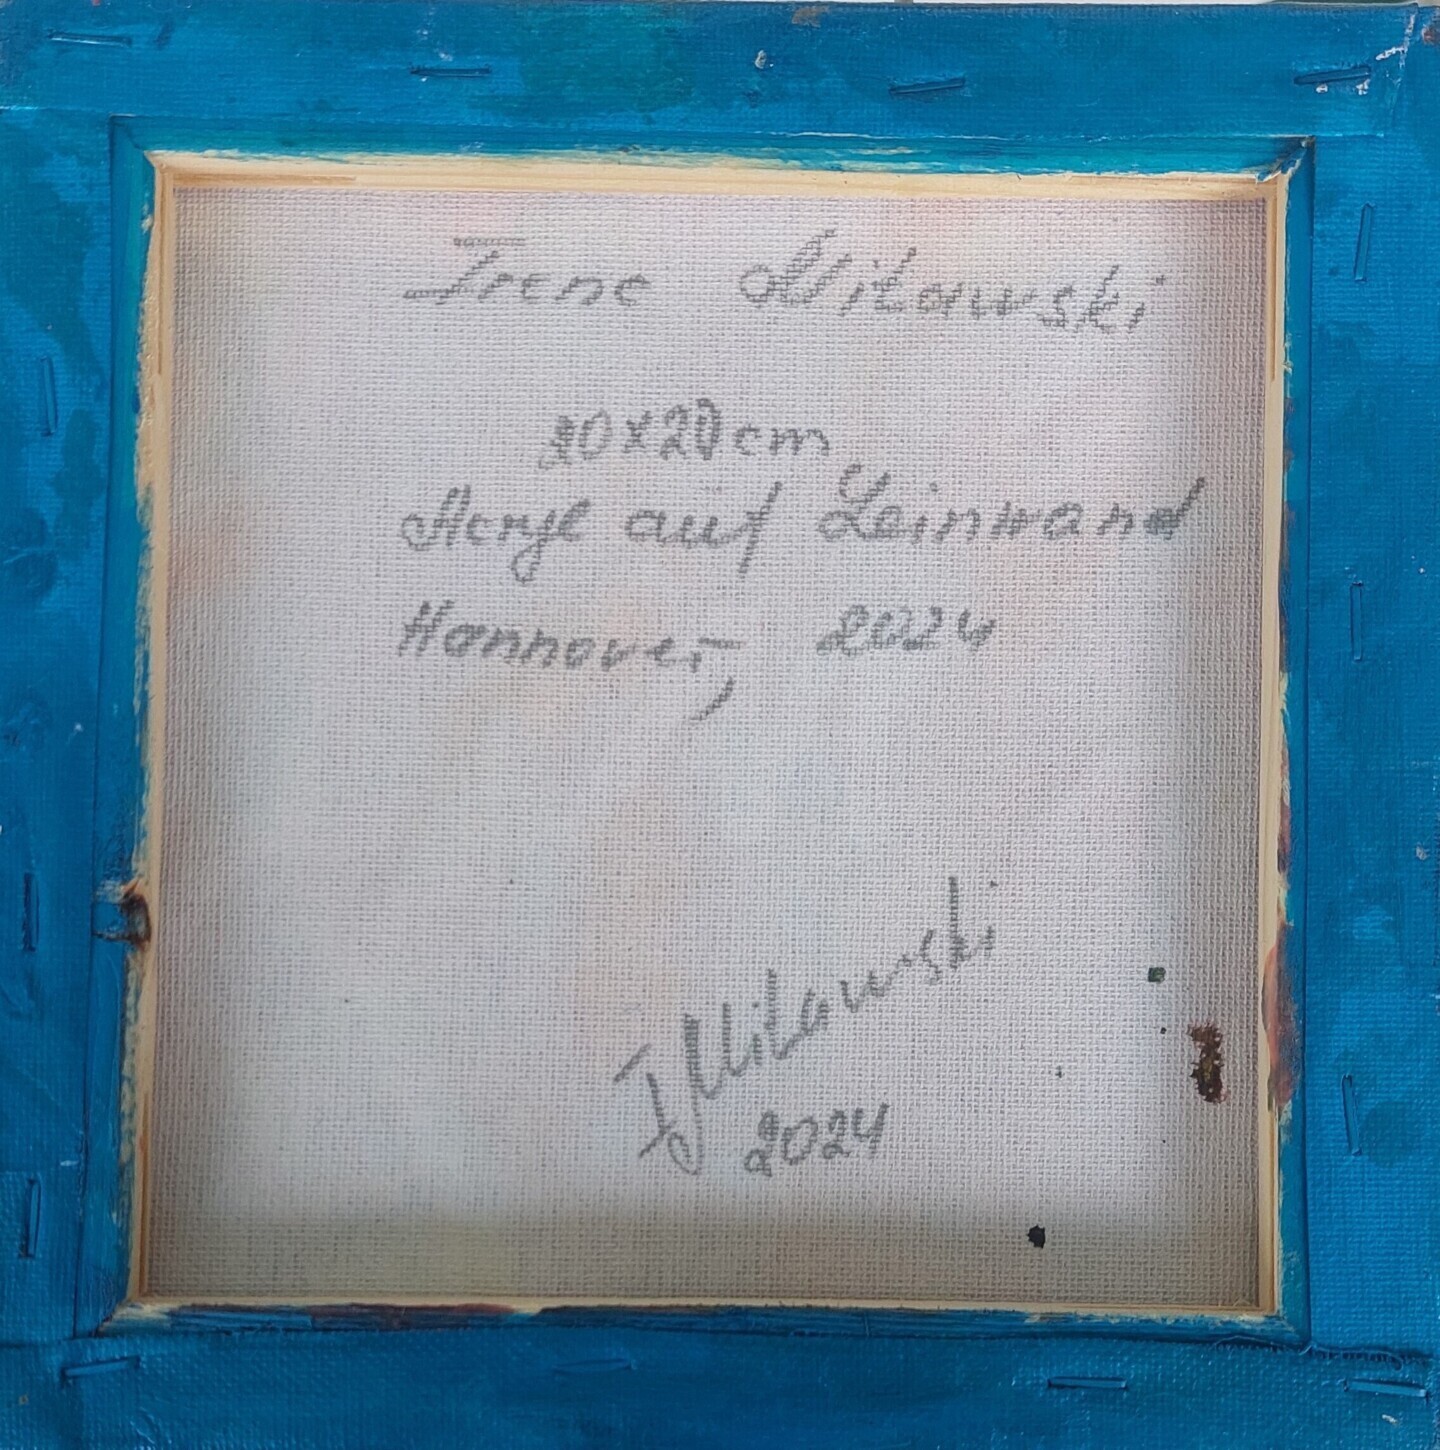 Irene Milawski
20x20cm
Acryl auf Leinwand
Hannover, 2024
I Milawski
2024